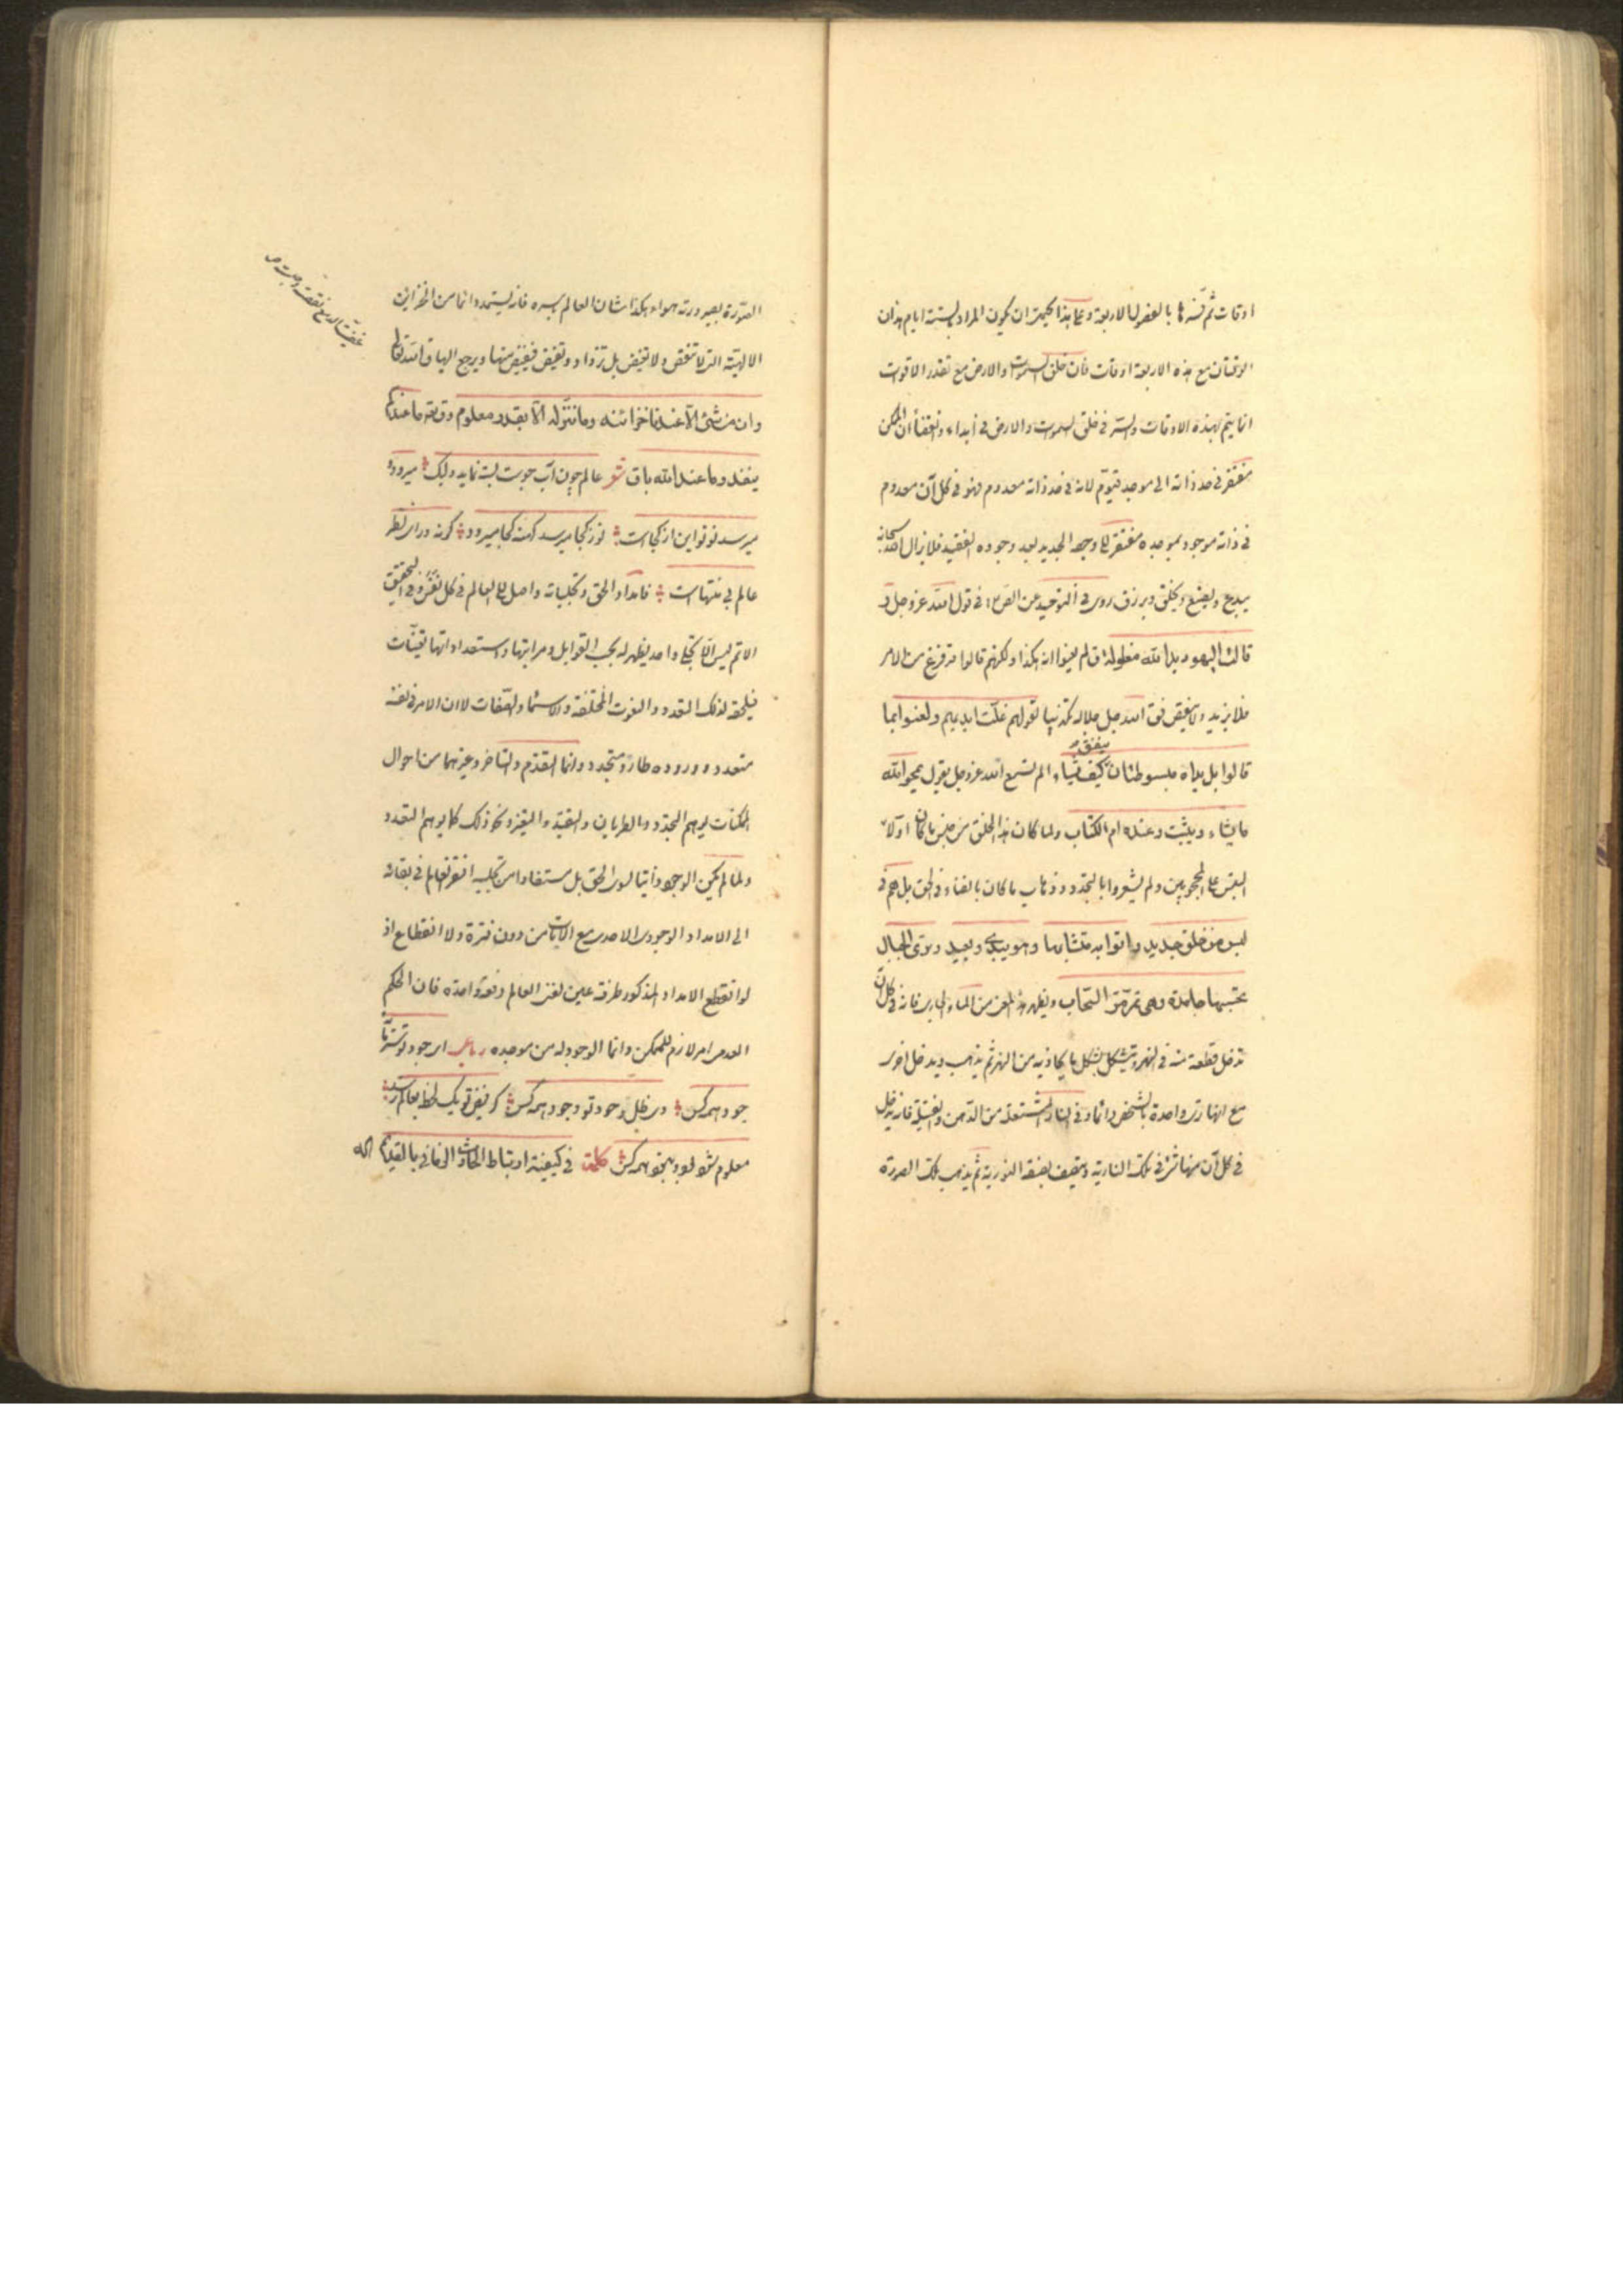 اوقات ثم فسرها بالفصول الاربعة وعلى هذا يحتمل ان يكون المراد بستة ايام هذان
الوقتان مع هذه الاربعة اوقات فان خلق السموات والارض مع تقدير الاقوات
انما يتم بهذه الاوقات والستر فى خلق السموات والارض فى ابتداء وانقضاء ان الممكن
مفتقر فى حد ذاته الى موجد قيوم لانه فى حد ذاته معدوم فهو فى كل آن معدوم
فى ذاته موجود بموجده مفتقر الى وجهه الجديد بعد وجوده الفقيد فلا يزال الله سبحانه
يبدع ويصنع ويخلق ويرزق روى فى التوحيد عن الص؏ فى قول الله عز وجل و
قالت اليهود يد الله مغلولة ق لم يعنوا انه هكذا ولكنهم قالوا قد فرغ من الامر
فلا يزيد ولا ينقص فق الله جل جلاله تكذيبا لقولهم غلت ايديهم ولعنوا بما
قالوا بل يداه مبسوطتان ينفق كيف يشاء الم تسمع الله عز وجل يقول يمحو الله
ما يشاء ويثبت وعنده ام الكتاب ولما كان هذا الخلق من جنس ما كان اولا
التبس على المحجوبين ولم يشعروا بالتجدد وذهاب ما كان بالفناء فى الحق بل هم فى
لبس من خلق جديد واتوا به متشابها وهو يبدئ ويعيد وترى الجبال
تحسبها جامدة وهى تمر مر السحاب ويظهر هذا المعنى من الماء الجارى فانه فى كل آن
تدخل قطعة منه فى النهر ويتشكل بشكل ما يحاذيه من النهر ثم يذهب ويدخل اخرى
مع انها ترى واحدة بالشخص دائما وفى النار المشتعلة من الدهن والفتيلة فانه يدخل
فى كل آن منها شئ فى تلك النارية ويتصف بصفة النورية ثم يذهب تلك الصورة
الصورة بصيرورته هواء هكذا شان العالم باسره فانه يستمد دائما من الخزائن
الالهية التى لا تنقص ولا تغيض بل تزداد وتفيض فيفيض منها ويرجع اليها ق الله تعالى
وان من شئ الا عندنا خزائنه وما ننزله الا بقدر معلوم وق تعه ما عندكم
ينفد وما عند الله باق شعر عالم چون آب جوست بسته نمايد وليك ميرود و
ميرسد نو نو اين از كجاست نو ز كجا ميرسد كهنه كجا ميرود گرنه وراى نظر
عالم بى منتهاست فامداد الحق وتجلياته واصل الى العالم فى كل نفس وفى التحقيق
الاتم ليس الا تجلى واحد يظهر له بحسب القوابل ومراتبها واستعداداتها تعينات
فيلحقه لذلك التعدد والنعوت المختلفة والاسماء والصفات لا ان الامر فى نفسه
متعدد ووروده طار ومتجدد وانما التقدم والتاخر وغيرهما من احوال
الممكنات يوهم التجدد والطريان والتقيد والتغير ونحو ذلك كما يوهم التعدد
ولما لم يكن الوجود ذاتيا لسوى الحق بل مستفادا من تجليه افتقر العالم فى بقائه
الى الامداد الوجودى الاحدى مع الآنات من دون فترة ولا انقطاع اذ
لو انقطع الامداد المذكور طرفة عين لفنى العالم دفعة واحدة فان الحكم
العدمى امر لازم للممكن وانما الوجود له من موجده رباعى اى جود تو سرمايه
جود همه كس وى ظل وجود تو وجود همه كس گر فيض تو يك لحظه بعالم نرسد
معلوم شود بود ونبود همه كس كلمة فى كيفية ارتباط الحادث الفانى بالقديم اله